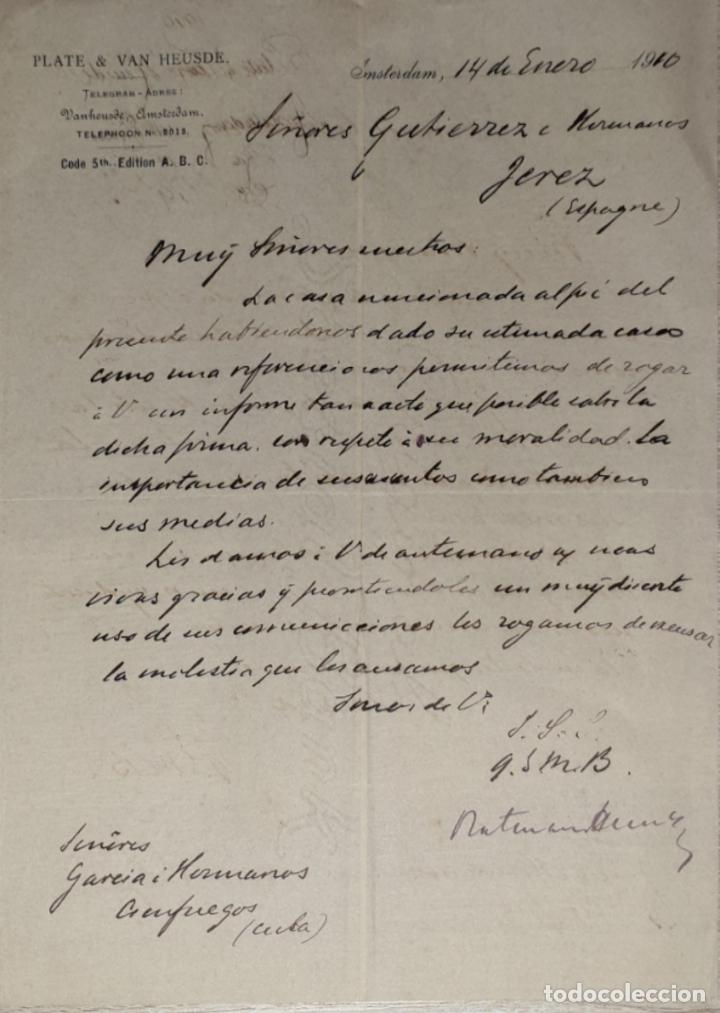 PLATE & VAN HEUSDE.
TELEGRAM-ADRES:
Vanheusde, Amsterdam.
TELEPHOON No. 9013.
Code 5th. Edition A. B. C.
Amsterdam, 14 de Enero 1910
Señores Gutierrez e Hermanos
Jerez
(Espagne)
Muÿ Señores nuestros:
La casa mencionada al pié del
presente habiendonos dado su estimada casa
como una referencia nos permitimos de rogar
à V un informe tan exacto que posible sobre la
dicha firma, con respeto à su moralidad. La
importancia de sus asuntos como tambien
sus medias.
Les damos à V de antemano
vivas gracias ÿ prometiendoles un muÿ discreto
uso de sus comunicciones les rogamos de
la molestia que les ausamos
Somos de Vs
S. S. S.
q. S M. B.
Señores
Garcia i Hermanos
Cienfuegos
(Cuba)
todocoleccion